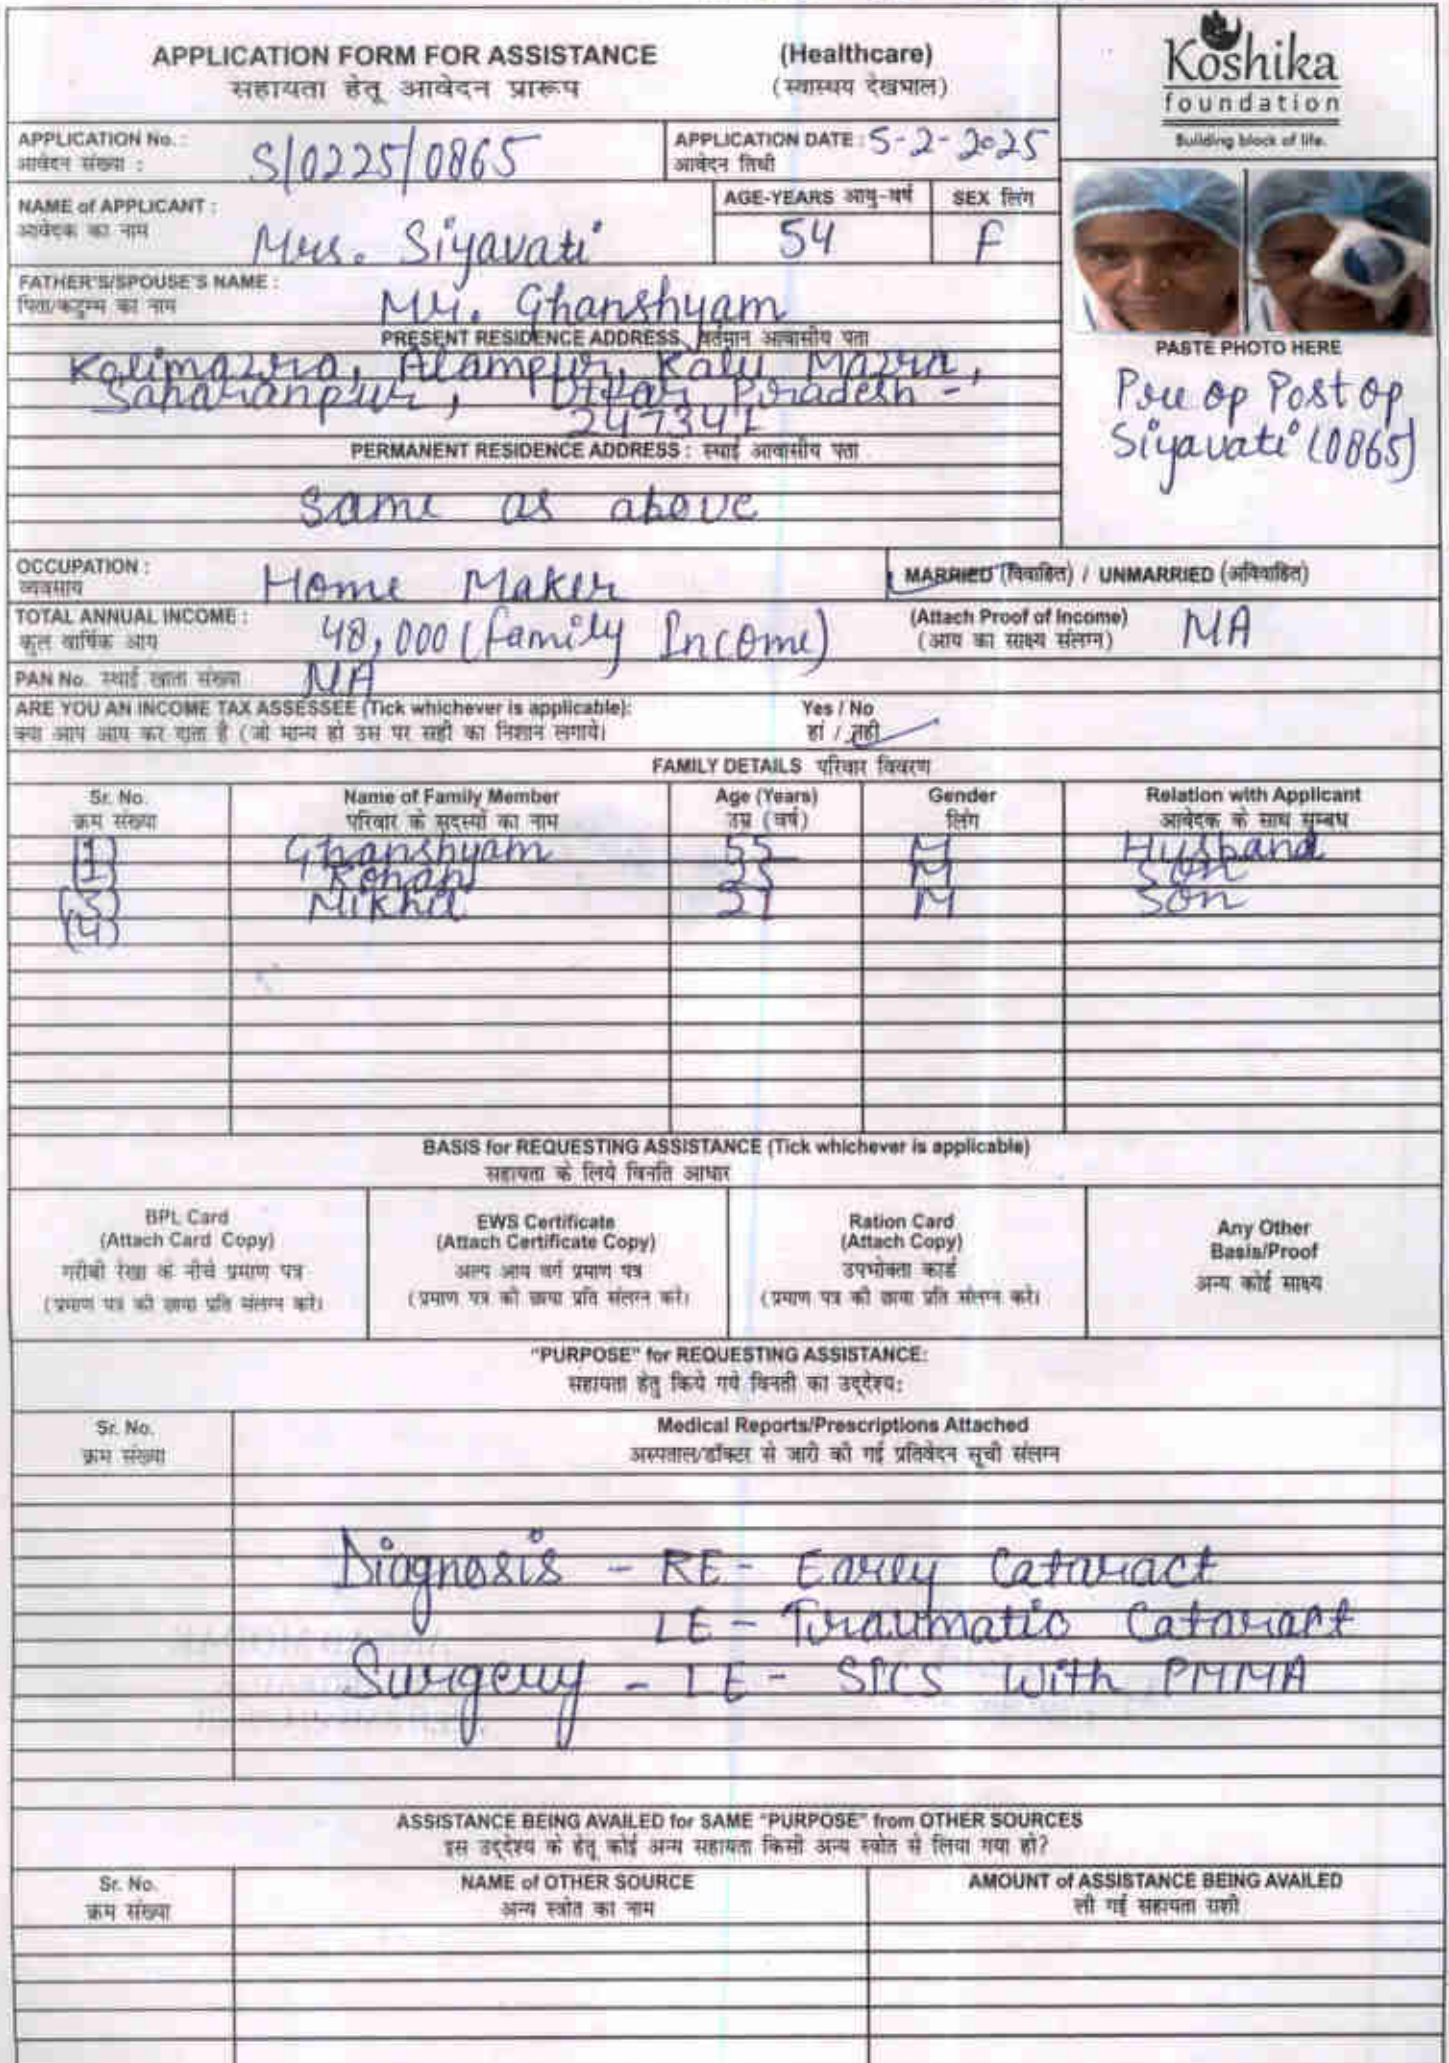 APPLICATION FORM FOR ASSISTANCE (Healthcare)
सहायता हेतू आवेदन प्रारूप (स्वास्थय देखभाल)
Koshika
foundation
Building block of life.
APPLICATION No. : S/0225/0865 APPLICATION DATE : 5-2-2025
आवेदन संख्या : आवेदन तिथी
NAME of APPLICANT : Mrs. Siyavati AGE-YEARS आयु-वर्ष 54 SEX लिंग F
आवेदक का नाम
FATHER'S/SPOUSE'S NAME : Mr. Ghanshyam
पिता/कटुम्ब का नाम
PRESENT RESIDENCE ADDRESS वर्तमान आवासीय पता
Kalimazra, Alampur, Kalu Mazra,
Saharanpur, Uttar Pradesh -
247341
PERMANENT RESIDENCE ADDRESS : स्थाई आवासीय पता
Same as above
PASTE PHOTO HERE
Pre op Post op
Siyavati (0865)
OCCUPATION : Home Maker MARRIED (विवाहित) / UNMARRIED (अविवाहित)
व्यवसाय
TOTAL ANNUAL INCOME : 48,000 (family Income) (Attach Proof of Income) NA
कुल वार्षिक आय (आय का साक्ष्य संलग्न)
PAN No. स्थाई खाता संख्या NA
ARE YOU AN INCOME TAX ASSESSEE (Tick whichever is applicable): Yes / No
क्या आप आय कर दाता है (जो मान्य हो उस पर सही का निशान लगाये। हां / नही
FAMILY DETAILS परिवार विवरण
Sr. No. Name of Family Member Age (Years) Gender Relation with Applicant
क्रम संख्या परिवार के सदस्यों का नाम उम्र (वर्ष) लिंग आवेदक के साथ सम्बध
(1) Ghanshyam 55 M Husband
Rohan 25 M Son
(3) Nikhil 21 M Son
(4)
BASIS for REQUESTING ASSISTANCE (Tick whichever is applicable)
सहायता के लिये विनति आधार
BPL Card
(Attach Card Copy)
गरीबी रेखा के नीचे प्रमाण पत्र
(प्रमाण पत्र की छाया प्रति संलग्न करे।
EWS Certificate
(Attach Certificate Copy)
अल्प आय वर्ग प्रमाण पत्र
(प्रमाण पत्र की छाया प्रति संलग्न करे।
Ration Card
(Attach Copy)
उपभोक्ता कार्ड
(प्रमाण पत्र की छाया प्रति संलग्न करे।
Any Other
Basis/Proof
अन्य कोई साक्ष्य
"PURPOSE" for REQUESTING ASSISTANCE:
सहायता हेतु किये गये विनती का उद्देश्य:
Sr. No. Medical Reports/Prescriptions Attached
क्रम संख्या अस्पताल/डॉक्टर से जारी की गई प्रतिवेदन सूची संलग्न
Diagnosis - RE - Early Cataract
LE - Traumatic Cataract
Surgery - LE - SICS with PMMA
ASSISTANCE BEING AVAILED for SAME "PURPOSE" from OTHER SOURCES
इस उद्देश्य के हेतू कोई अन्य सहायता किसी अन्य स्त्रोत से लिया गया हो?
Sr. No. NAME of OTHER SOURCE AMOUNT of ASSISTANCE BEING AVAILED
क्रम संख्या अन्य स्त्रोत का नाम ली गई सहायता राशी